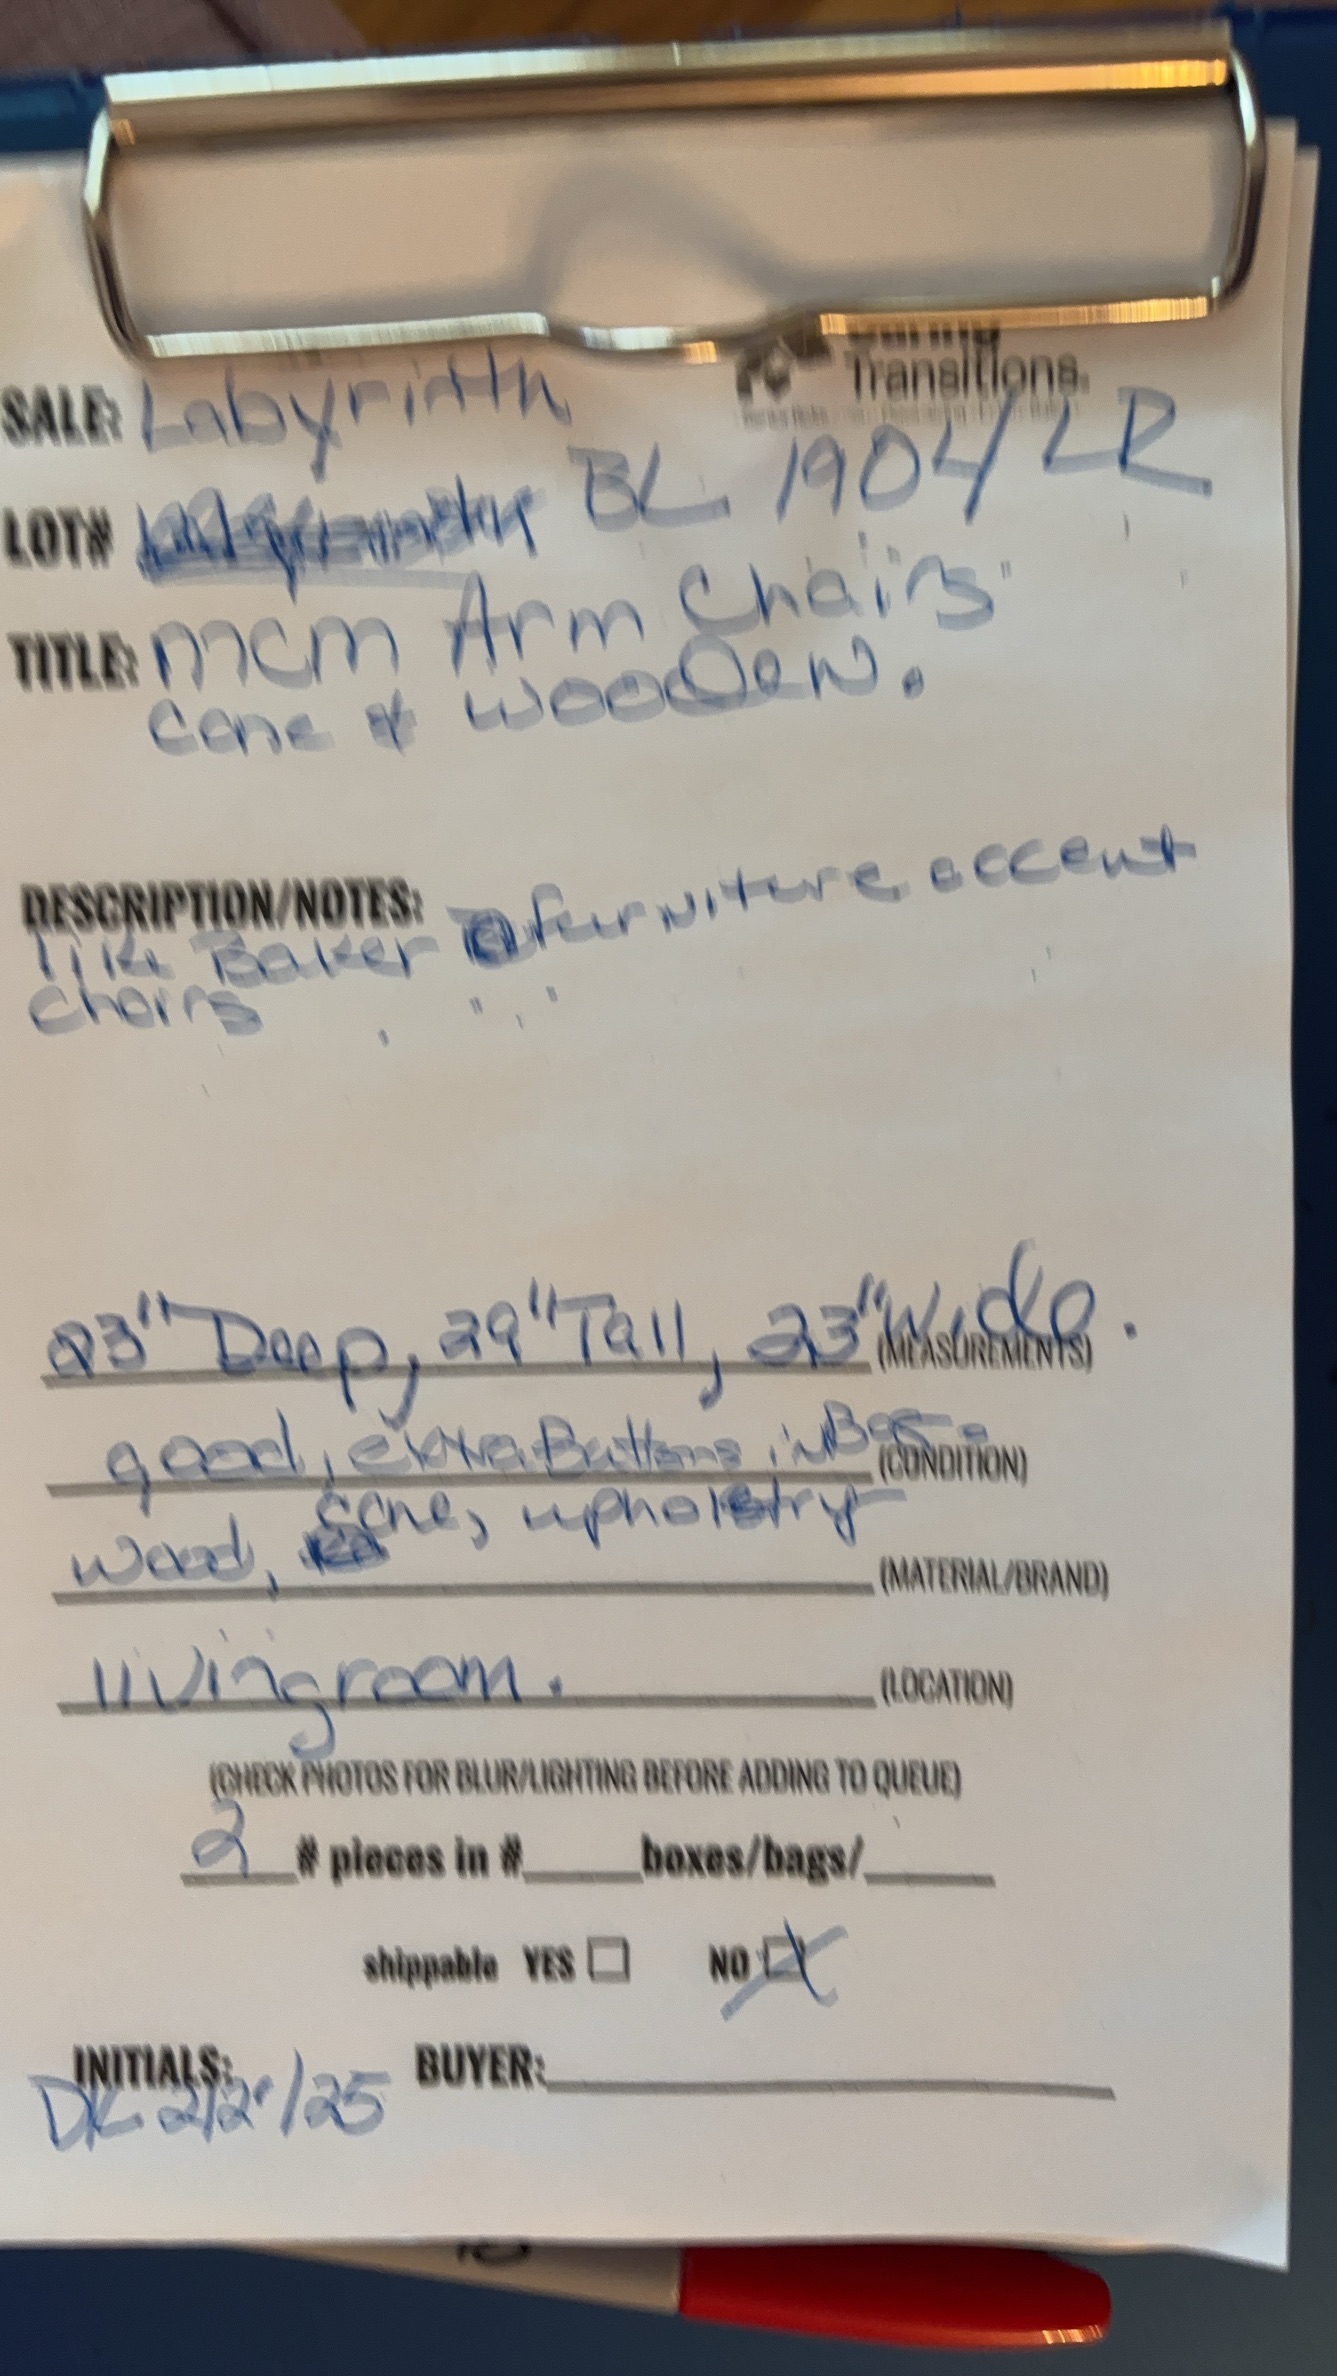 Transitions.
SALE: Labyrinth
LOT# BL 1904/LR
TITLE: MCM Arm Chairs
cane & wooden.
DESCRIPTION/NOTES: furniture accent
like Baker
chairs
23" Deep, 29" Tall, 23" Wide.
(MEASUREMENTS)
good, extra Buttons in Bag.
(CONDITION)
wood, cane, upholstry
(MATERIAL/BRAND)
livingroom. (LOCATION)
(CHECK PHOTOS FOR BLUR/LIGHTING BEFORE ADDING TO QUEUE)
2 # pieces in #____ boxes/bags/____
shippable YES ☐ NO ☒
INITIALS: BUYER:
DK 2/2/25